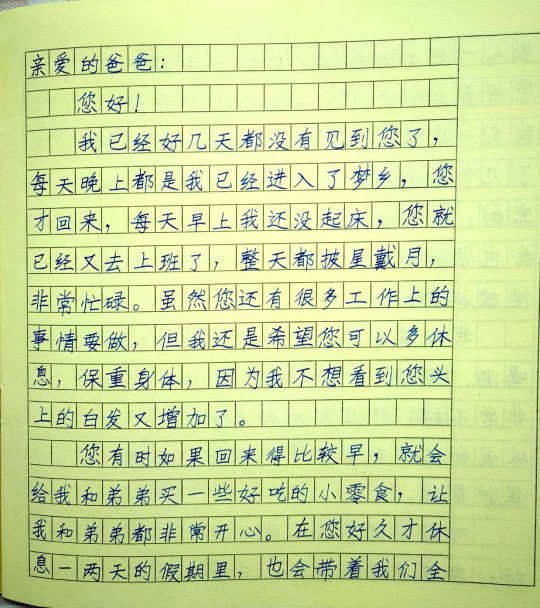 亲爱的爸爸：
您好！
我已经好几天都没有见到您了，
每天晚上都是我已经进入了梦乡，您
才回来，每天早上我还没起床，您就
已经又去上班了，整天都披星戴月，
非常忙碌。虽然您还有很多工作上的
事情要做，但我还是希望您可以多休
息，保重身体，因为我不想看到您头
上的白发又增加了。
您有时如果回来得比较早，就会
给我和弟弟买一些好吃的小零食，让
我和弟弟都非常开心。在您好久才休
息一两天的假期里，也会带着我们全